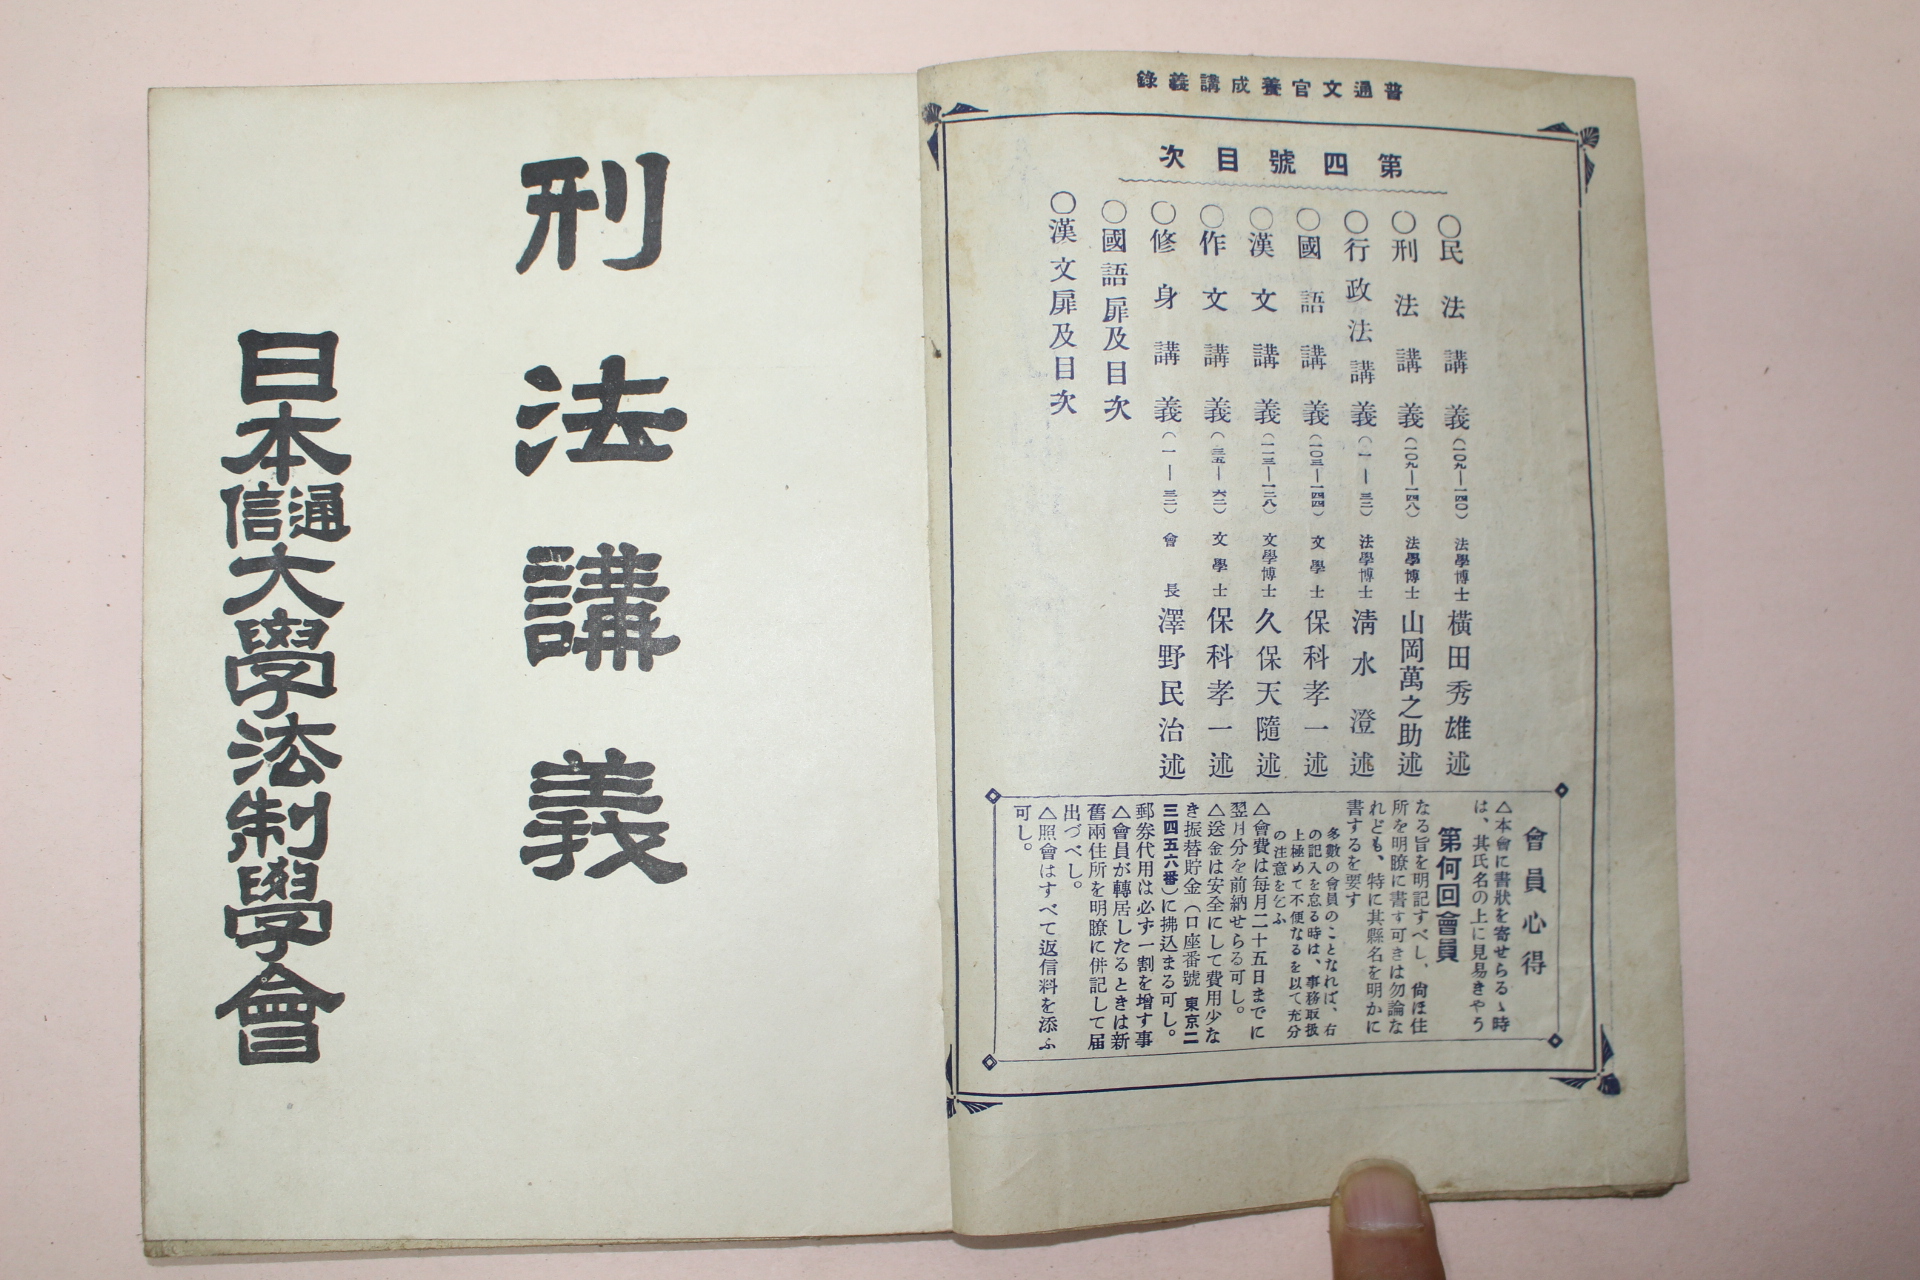 普通文官養成講義錄
第四號目次
○民法講義（一〇九―一四〇）法學博士 橫田秀雄述
○刑法講義（一〇九―一四八）法學博士 山岡萬之助述
○行政法講義（一―三二）法學博士 淸水澄述
○國語講義（一〇三―一四四）文學士 保科孝一述
○漢文講義（一一三―一二八）文學博士 久保天隨述
○作文講義（三五―六二）文學士 保科孝一述
○修身講義（一―三二）會長 澤野民治述
○國語扉及目次
○漢文扉及目次
會員心得
△本會に書狀を寄せらるゝ時
は、其氏名の上に見易きやう
第何回會員
なる旨を明記すべし、尙ほ住
所を明瞭に書す可きは勿論な
れども、特に其縣名を明かに
書するを要す
多數の會員のことなれば、右
の記入を忘る時は、事務取扱
上極めて不便なるを以て充分
の注意を乞ふ
△會費は每月二十五日までに
翌月分を前納せらる可し。
△送金は安全にして費用少な
き振替貯金（口座番號 東京二
三四五六番）に拂込まる可し。
郵券代用は必ず一割を增す事
△會員が轉居したるときは新
舊兩住所を明瞭に併記して届
出づべし。
△照會はすべて返信料を添ふ
可し。
刑法講義
日本通信大學法制學會